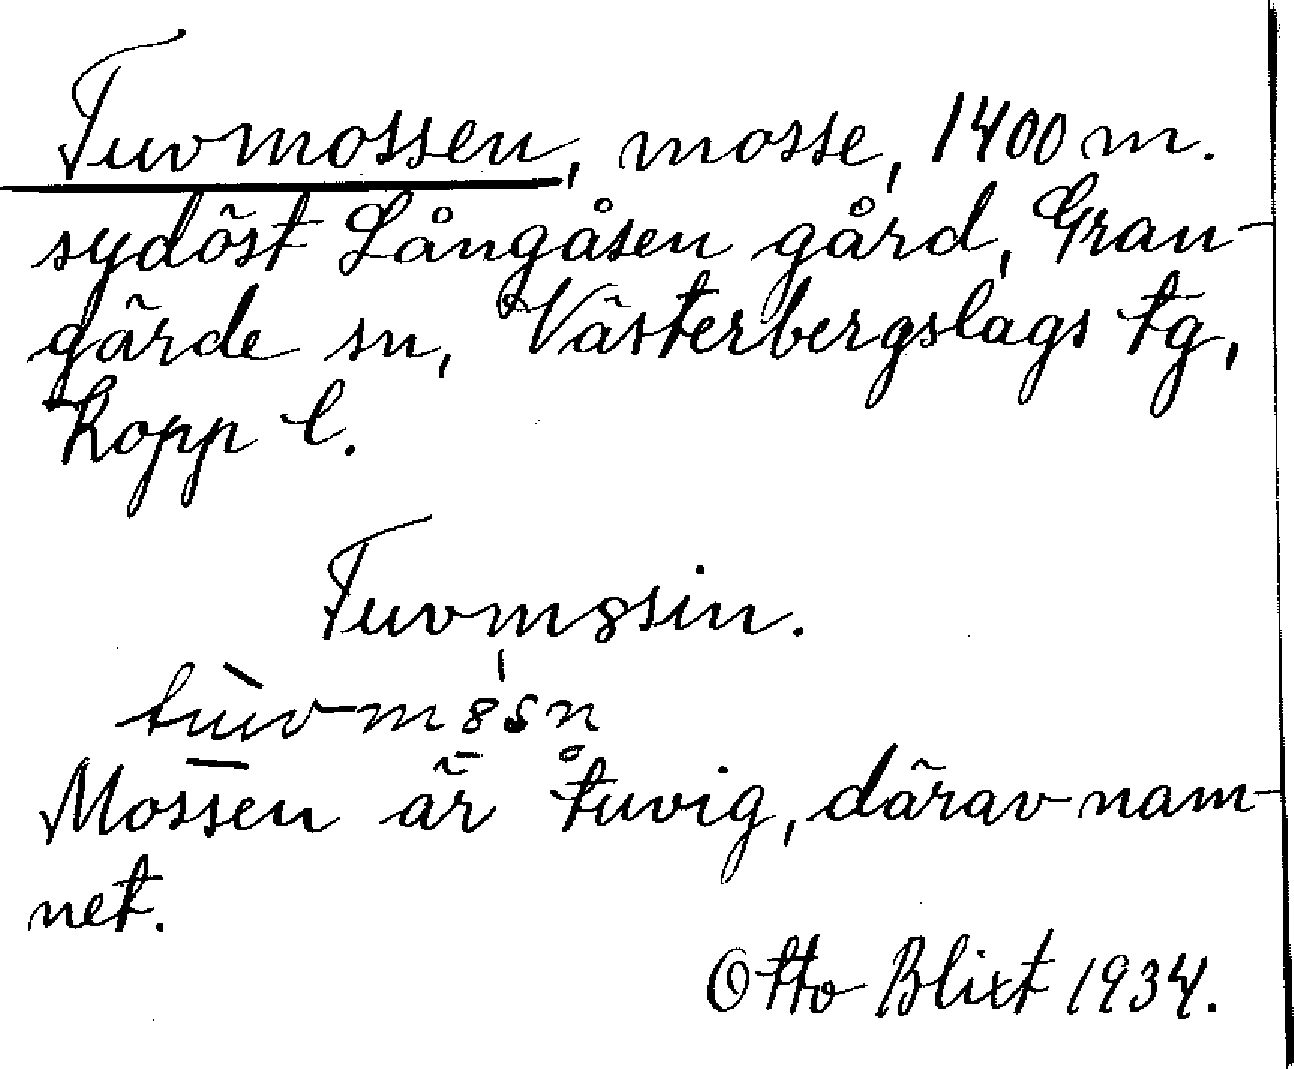 Tuvmossen, mosse, 1400 m.
sydöst Långåsen gård, Gran-
gärde sn, Västerbergslags tg,
Kopp l.
Tuvm8sin.
tuv-m8sn
Mossen är tuvig, därav nam-
net.
Otto Blixt 1934.